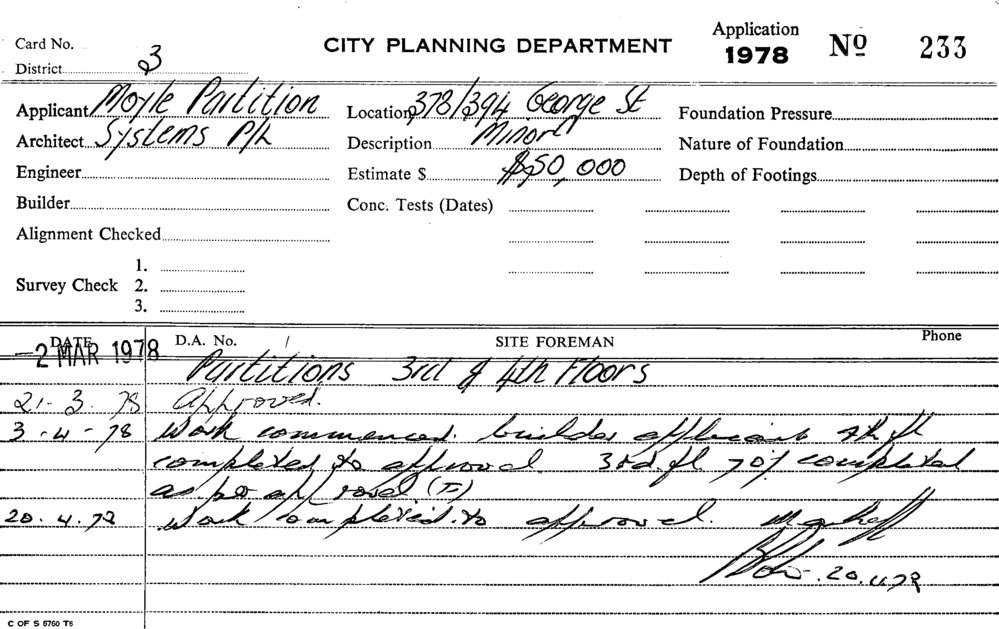 Card No.
District 3
CITY PLANNING DEPARTMENT
Application
1978 No 233
Applicant Moyle Partition
Architect Systems P/L
Engineer
Builder
Alignment Checked
Survey Check 1.
2.
3.
Location 378/394 George St
Description Minor
Estimate $ $50,000
Conc. Tests (Dates)
Foundation Pressure
Nature of Foundation
Depth of Footings
DATE D.A. No. / SITE FOREMAN Phone
-2 MAR 1978 Partitions 3rd & 4th Floors
21-3.78 Approved.
3-4-78 Work commenced. builder applicant 4th fl
completed to approval 3rd. fl 70% completed
as per approval (F)
20.4.78 Work completed to approval.
20.4.78
C OF S 5760 T5